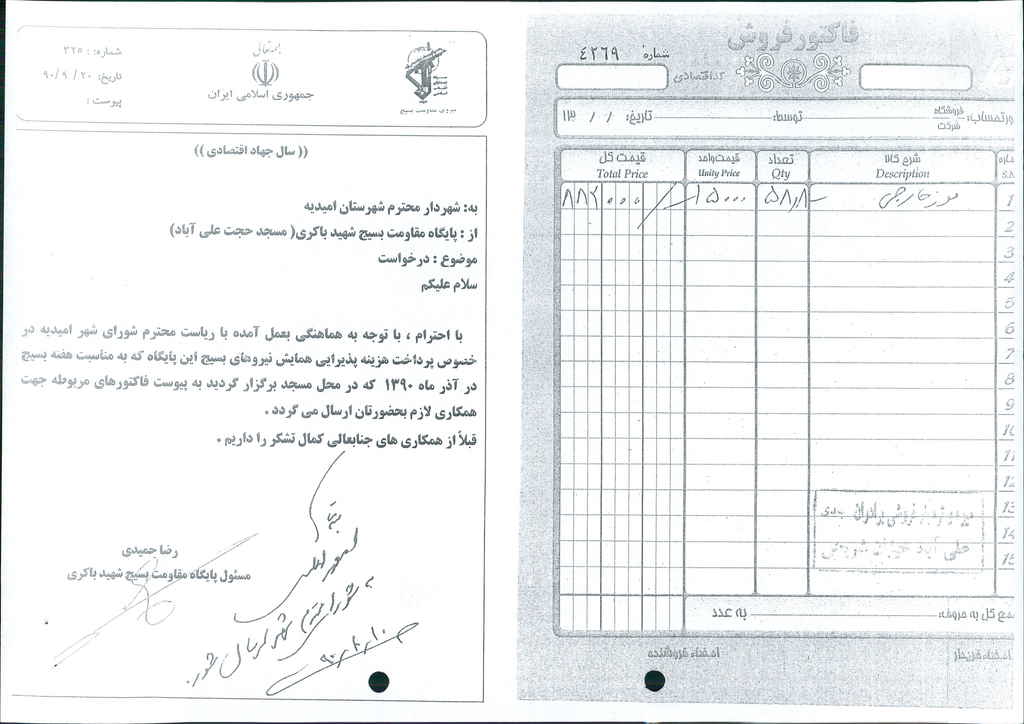 بسمه تعالی
جمهوری اسلامی ایران
شماره: ۳۲۵
تاریخ: ۹۰/۹/۲۰
پیوست:
نیروی مقاومت بسیج
(( سال جهاد اقتصادی ))
به: شهردار محترم شهرستان امیدیه
از : پایگاه مقاومت بسیج شهید باکری( مسجد حجت علی آباد)
موضوع : درخواست
سلام علیکم
با احترام ، با توجه به هماهنگی بعمل آمده با ریاست محترم شورای شهر امیدیه در
خصوص پرداخت هزینه پذیرایی همایش نیروهای بسیج این پایگاه که به مناسبت هفته بسیج
در آذر ماه ۱۳۹۰ که در محل مسجد برگزار گردید به پیوست فاکتورهای مربوطه جهت
همکاری لازم بحضورتان ارسال می گردد .
قبلاً از همکاری های جنابعالی کمال تشکر را داریم .
رضا حمیدی
مسئول پایگاه مقاومت بسیج شهید باکری
به شورای محترم شهر ارسال شود.
فاکتور فروش
شماره ٤٢٦٩
کد اقتصادی
ورتحساب: فروشگاه شرکت توسط: تاریخ: / / ۱۳
شرح کالا تعداد قیمت واحد قیمت کل
Description Qty Unity Price Total Price
1 موز خارجی ۵۸٫۸ ۱۵۰۰۰ ۸۸۲۰۰۰
2
3
4
5
6
7
8
9
10
11
12
13
14
15
فروشی برادران
علی آباد
مع کل به حروف: به عدد
امضاء خریدار امضاء فروشنده